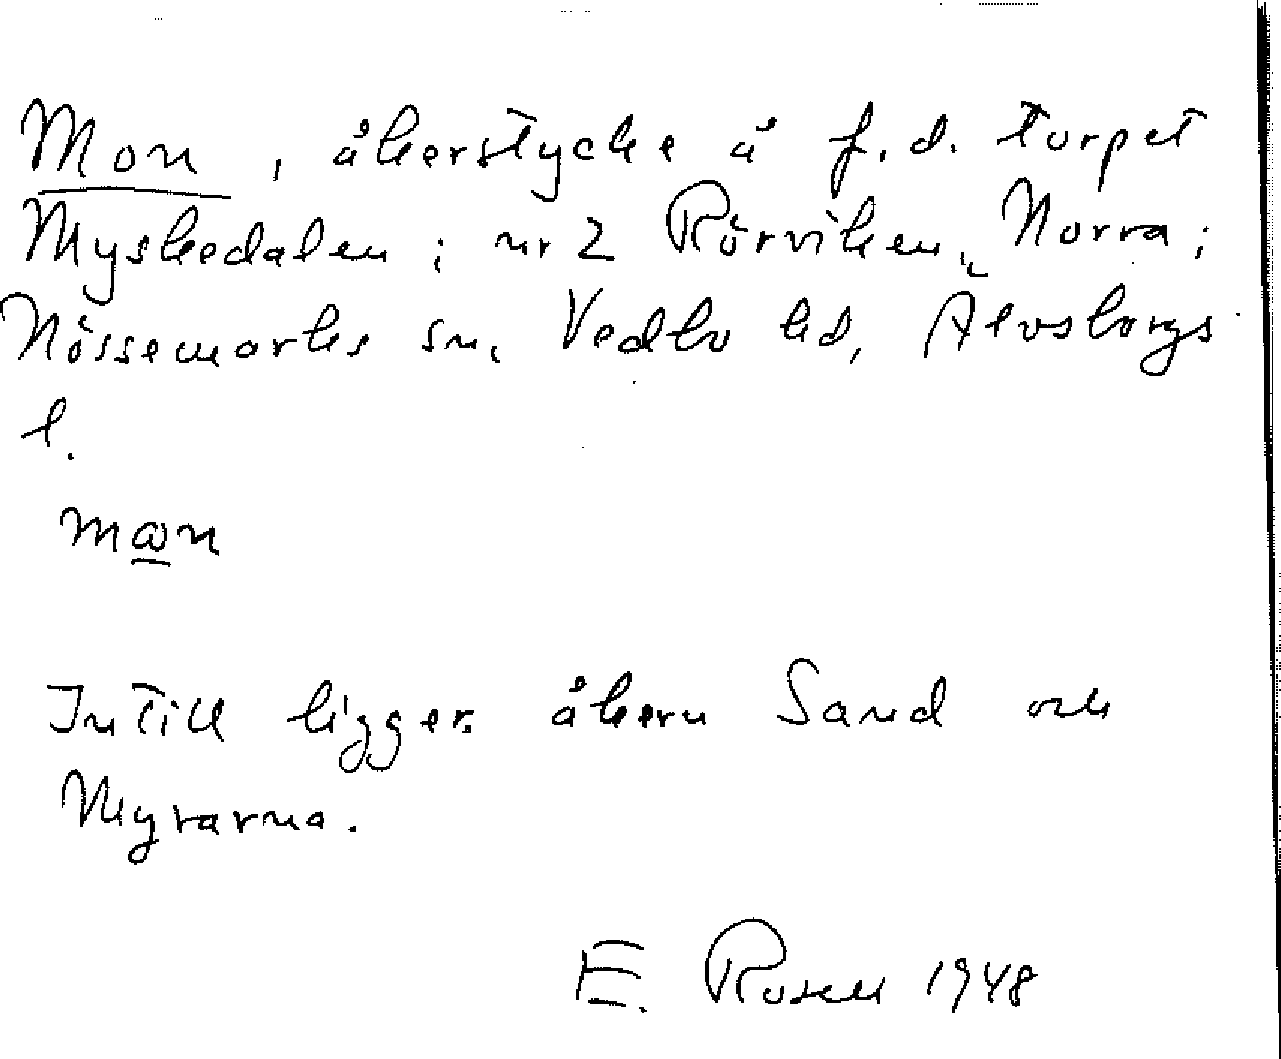 Mon, åkerstycke å f.d. torpet
Myskedalen; nr 2 Rörviken, Norra;
Nössemarks sn, Vedbo hd, Älvsborgs
l.
Intill ligger åkern Sand och
Myrarna.
E. Rosen 1948